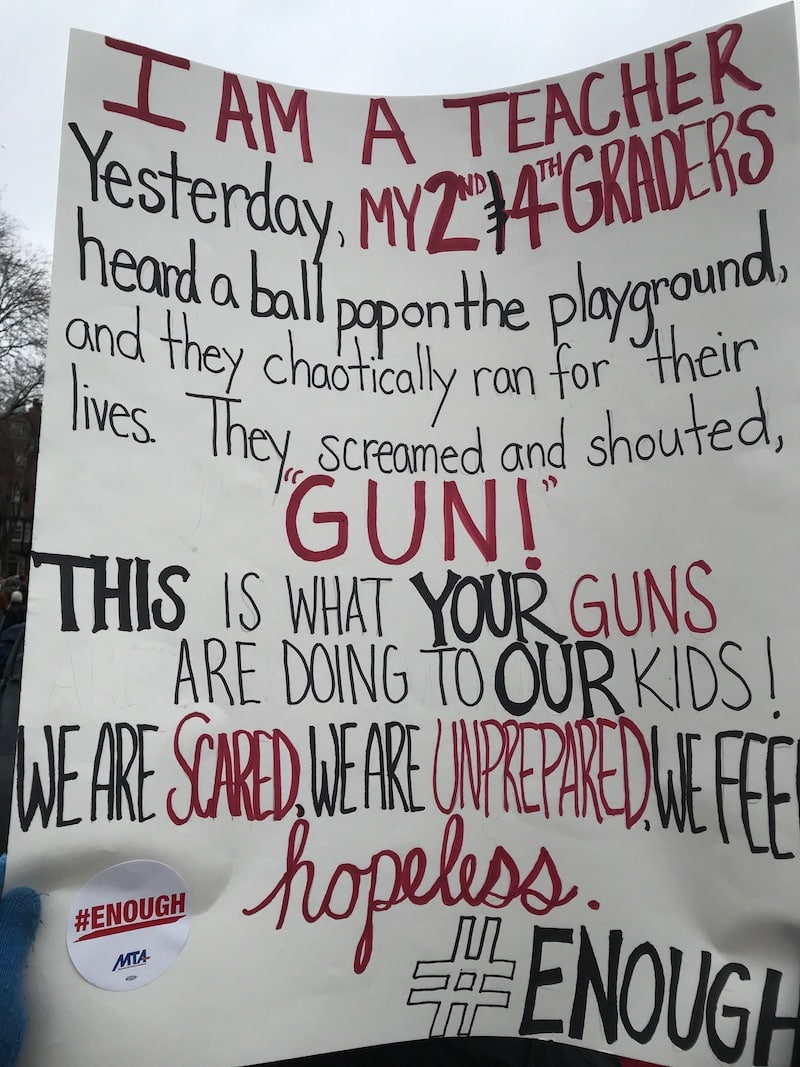 I AM A TEACHER
Yesterday, MY 2ND & 4TH GRADERS
heard a ball pop on the playground,
and they chaotically ran for their
lives. They screamed and shouted,
"GUN!"
THIS IS WHAT YOUR GUNS
ARE DOING TO OUR KIDS!
WE ARE SCARED, WE ARE UNPREPARED, WE FEE
hopeless.
#ENOUGH
MTA
#ENOUGH